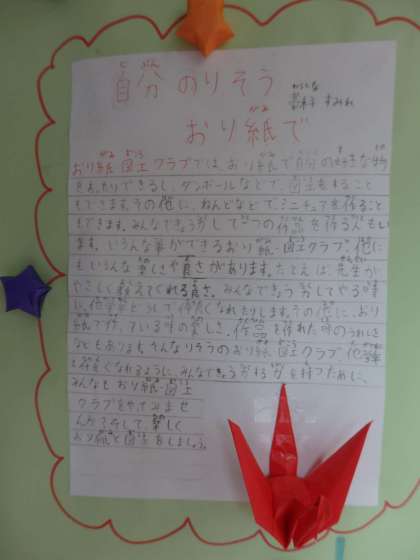 自分のりそう
おり紙で
おり紙 図工クラブでは、おり紙で自分の好きな物
をおったりできるし、ダンボールなどで、図工をすること
もできます。その他に、ねんどなどで、ミニチュアを作ること
もできます。みんなできょう力して一つの作品を作る人もい
ます。いろんな事ができるおり紙・図工クラブ。他に
もいろんな楽しさや良さがあります。たとえば、先生が
やさしく教えてくれる良さ。みんなできょう力してやる楽し
い、他学年どうしで仲良くなれたりします。その他に、おり
紙で作っている時の楽しさ、作品を作れた時のうれしさ
などもあります。そんなりそうのおり紙 図工クラブ。他学年
と仲良くなれるように、みんなできょう力する力を持つために、
みんなも おり紙・図工
クラブをやってみませ
んか？そして楽しく
おり紙と図工をしましょう。